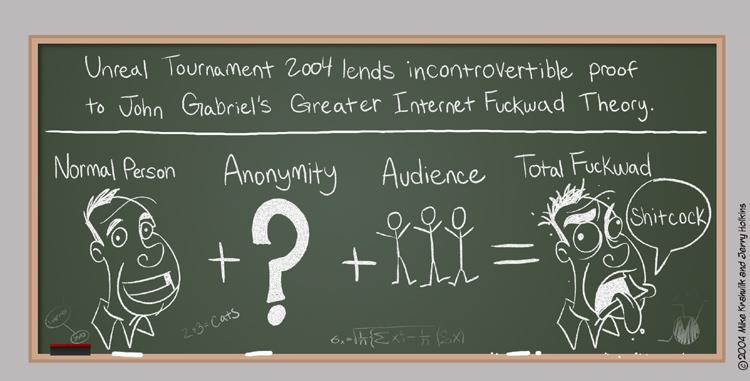 Unreal Tournament 2004 lends incontrovertible proof
to John Gabriel's Greater Internet Fuckwad Theory.
Normal Person
Anonymity
Audience
Total Fuckwad
+
?
+
=
Shitcock
2+3= cats
©2004 Mike Krahulik and Jerry Holkins